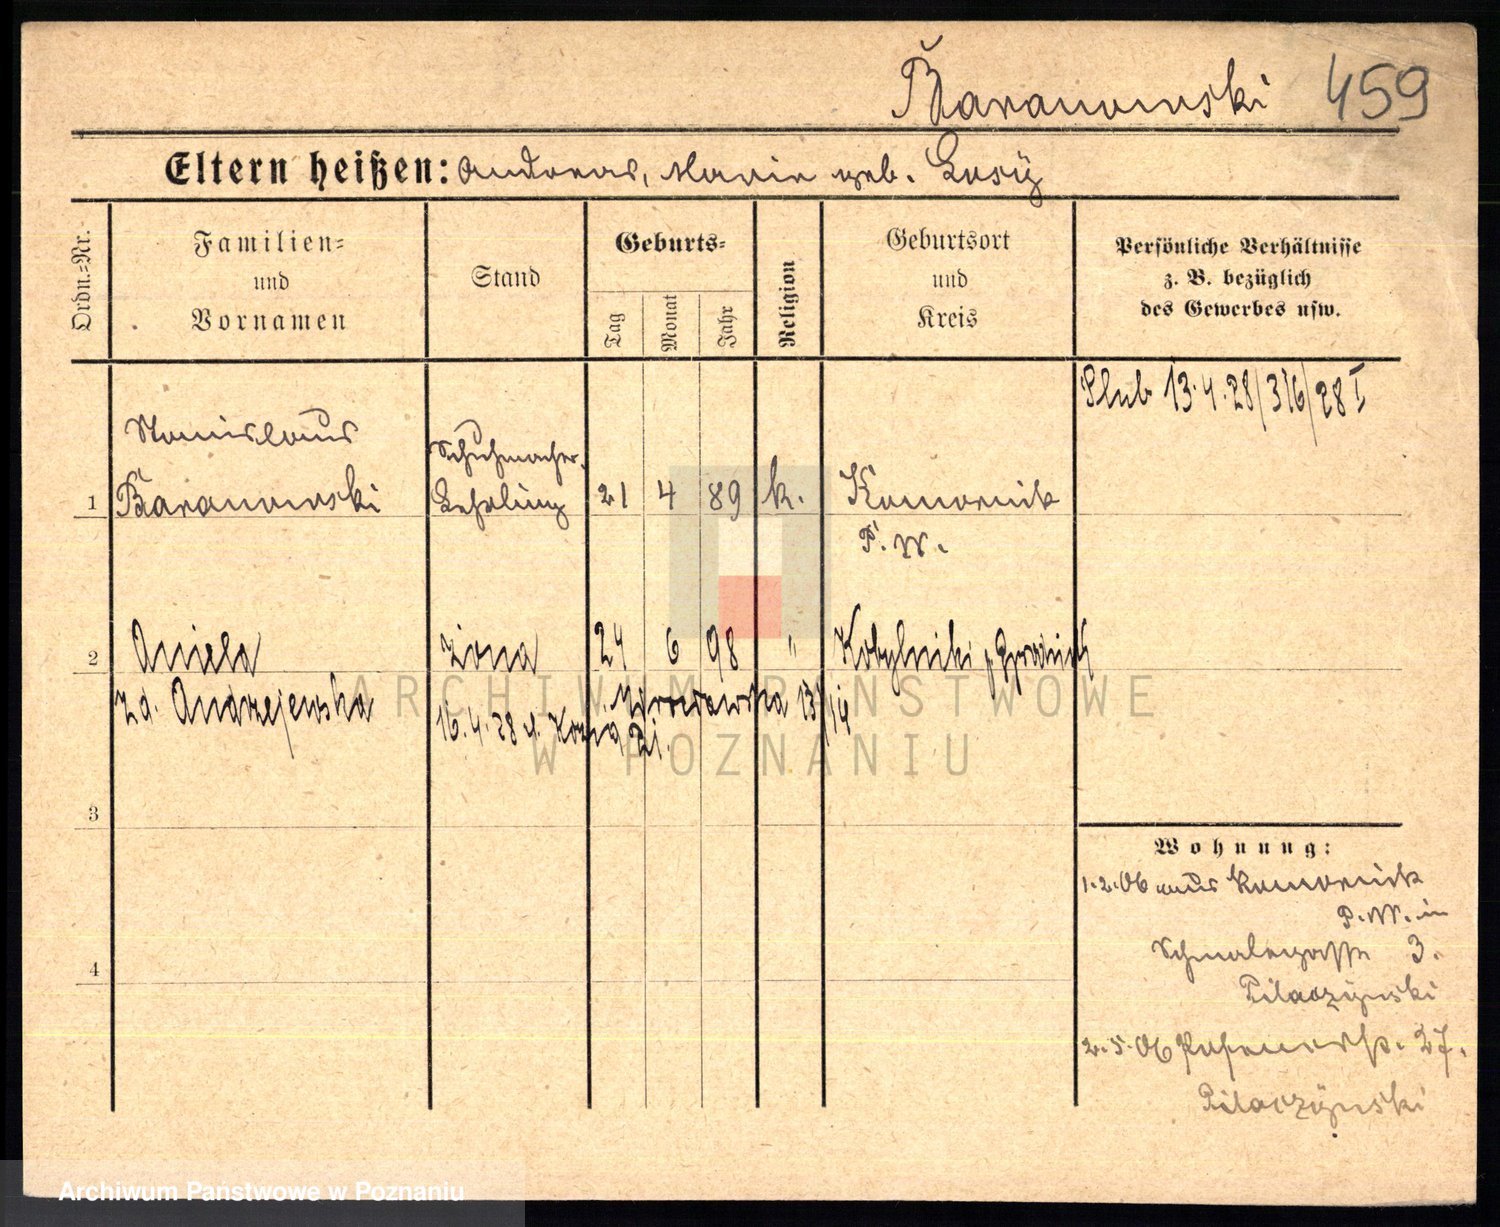 Baranowski 459
Eltern heißen: Andreas, Marie geb.
Ordn.=Nr.
Familien=
und
Vornamen
Stand
Geburts=
Tag
Monat
Jahr
Religion
Geburtsort
und
Kreis
Persönliche Verhältnisse
z. B. bezüglich
des Gewerbes usw.
Ślub 13.4.28/316/28 I
Stanislaus
Schuhmacher-
1 Baranowski Lehrling 21 4 89 k. Komornik
P. W.
2 Aniela żona 24 6 98 " Kobylniki p.
zd. Andrzejewska
16.4.28
3
4
Wohnung:
1.2.06 aus Komornik
P. W. in
Schmalegasse 3.
Pilaczyński
2.5.06 Posenerstr. 27.
Pilaczyński
ARCHIWUM PAŃSTWOWE
W POZNANIU
Archiwum Państwowe w Poznaniu